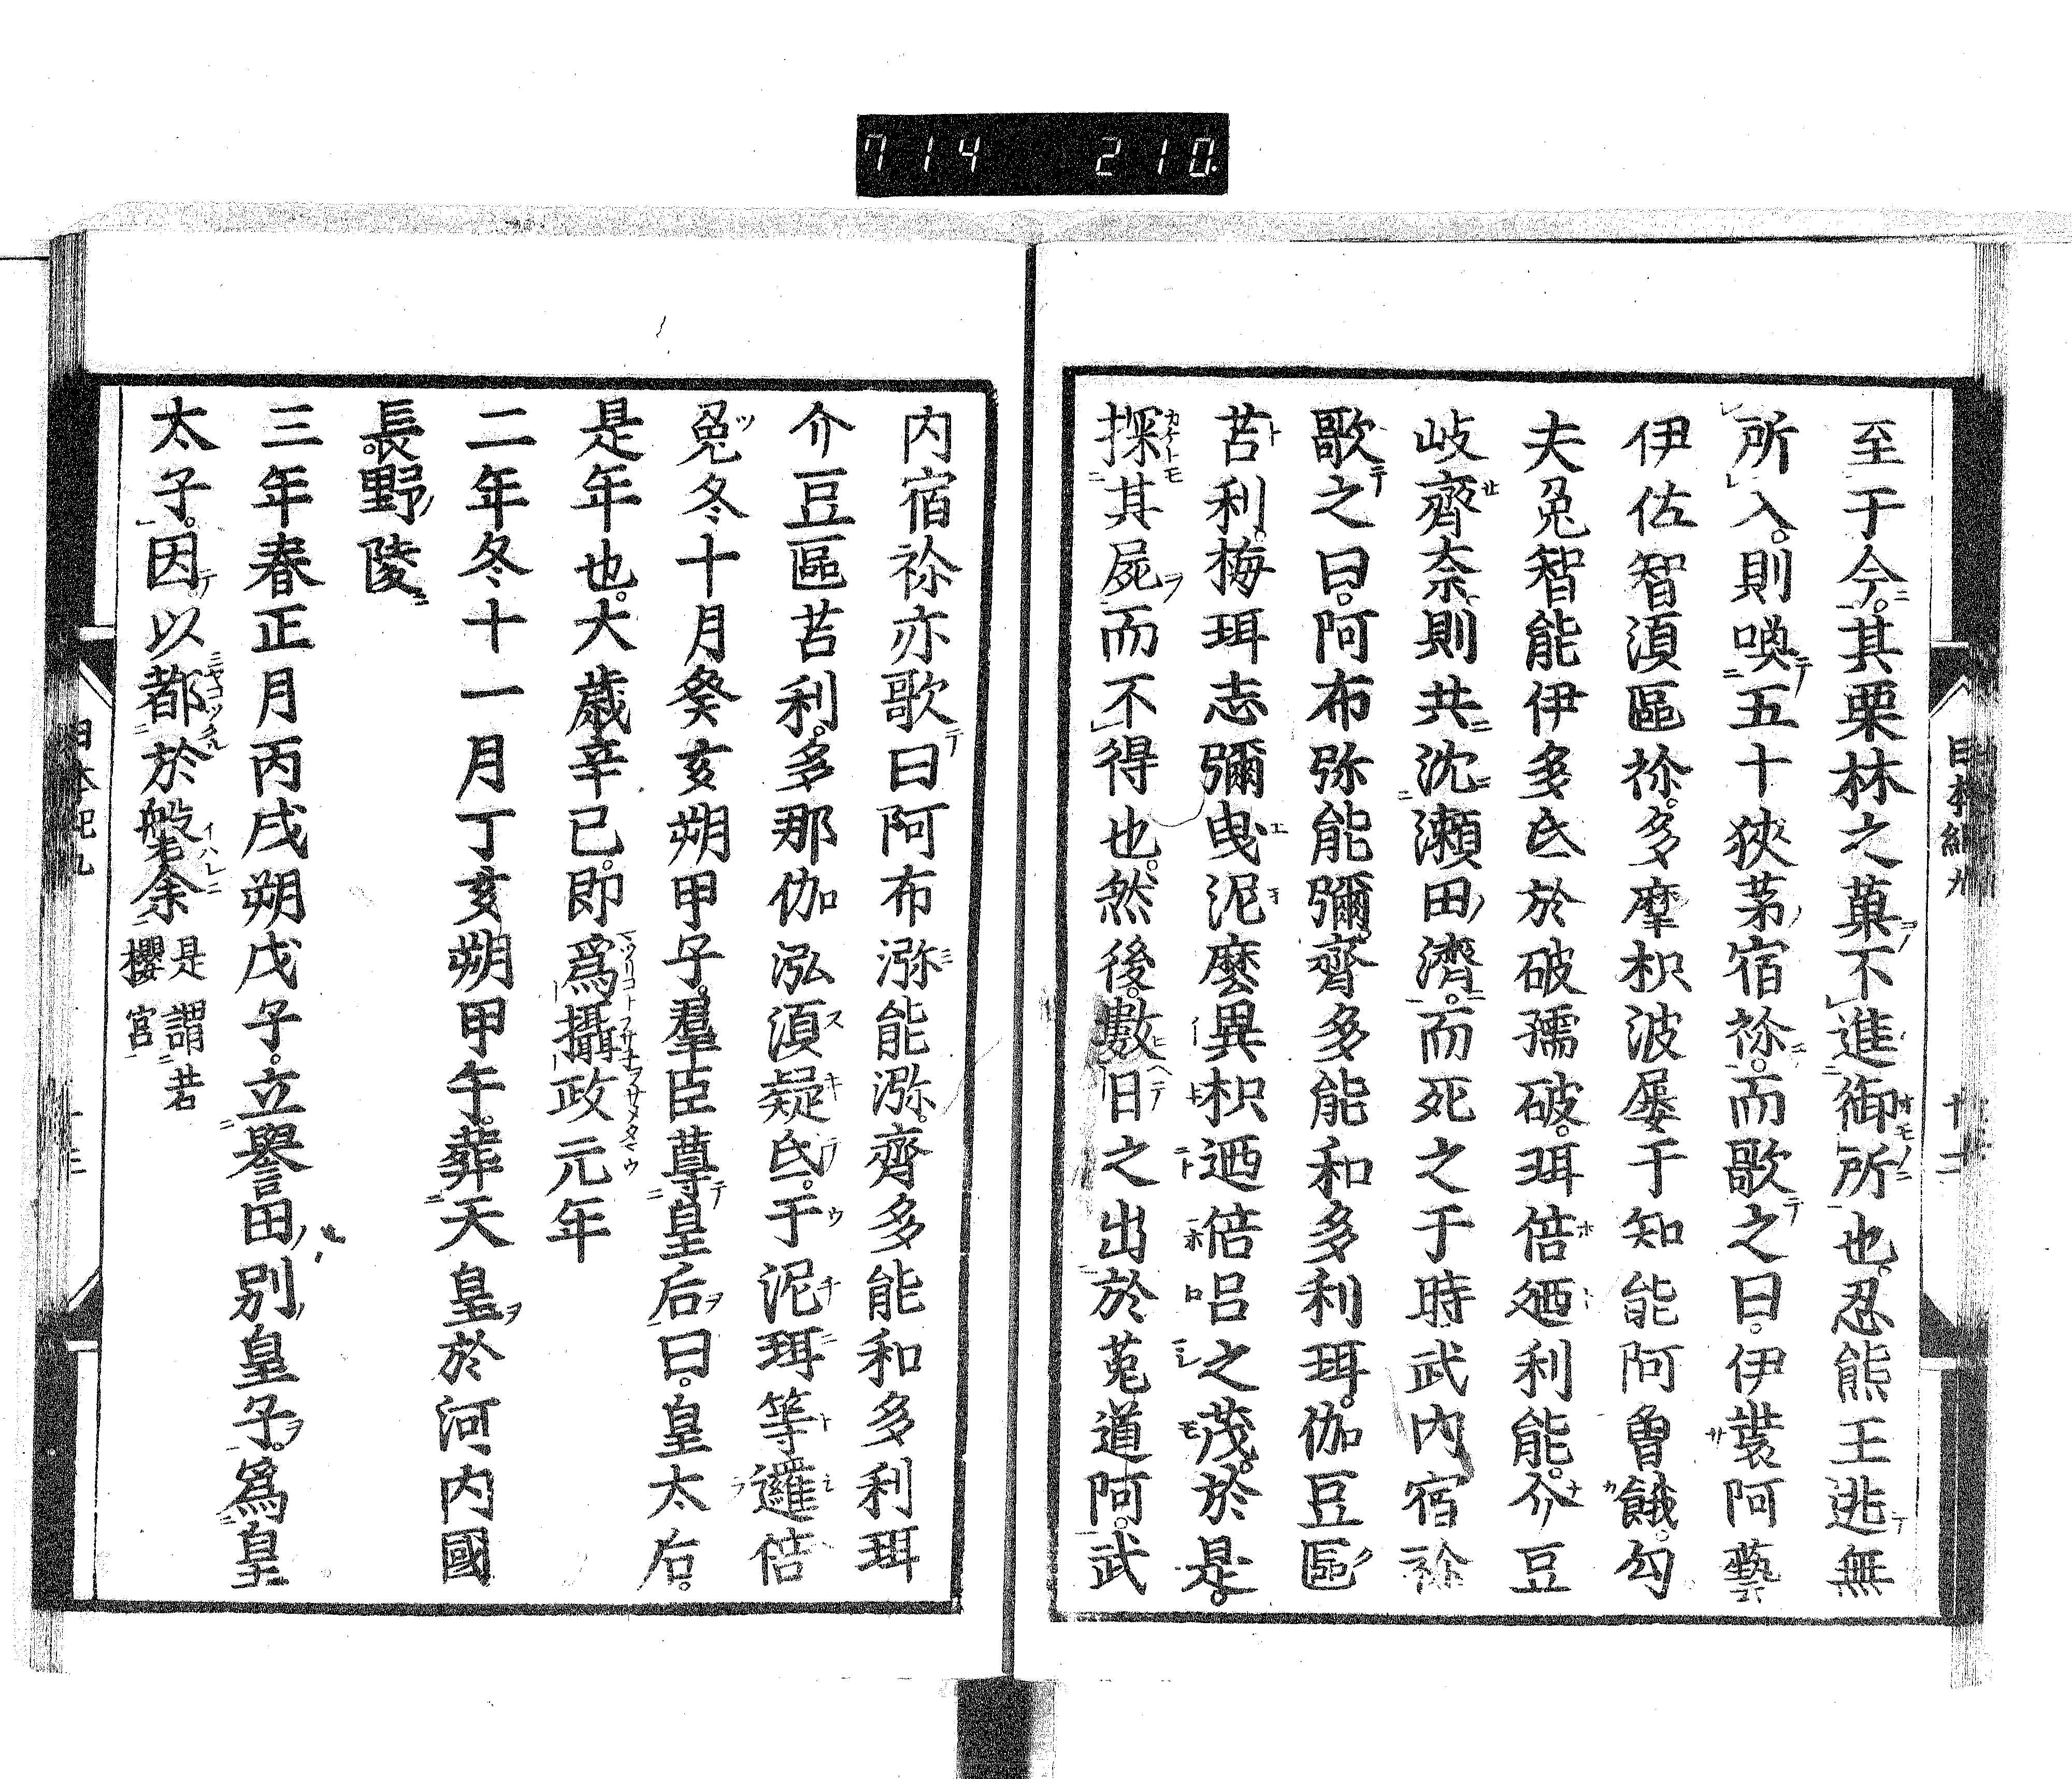 714 210
日本紀九
十二
至于今。其栗林之菓不進御所也。忍熊王逃無
所入。則喚五十狹茅宿祢。而歌之曰。伊裝阿藝
伊佐智湏區祢。多摩枳波屡于知能阿曽餓。勾
夫菟智能伊多氐於破孺破。珥倍廼利能。介豆
岐齊奈則共沈瀬田濟。而死之于時武内宿祢
歌之曰。阿布弥能彌齊多能和多利珥。伽豆區
苫利。梅珥志彌曳泥麼異枳迺倍呂之茂。於是。
探其屍而不得也。然後。數日之出於菟道阿。武
内宿祢亦歌曰阿布瀰能瀰。齊多能和多利珥
介豆區苫利。多那伽泓湏疑氐。于泥珥等邏倍
菟冬十月癸亥朔甲子。羣臣尊皇后曰。皇太后。
是年也。大歳辛巳。即爲攝政元年
二年冬十一月丁亥朔甲午。葬天皇於河内國
長野陵
三年春正月丙戌朔戊子。立譽田別皇子。爲皇
太子。因以都於磐余 是謂若櫻宮